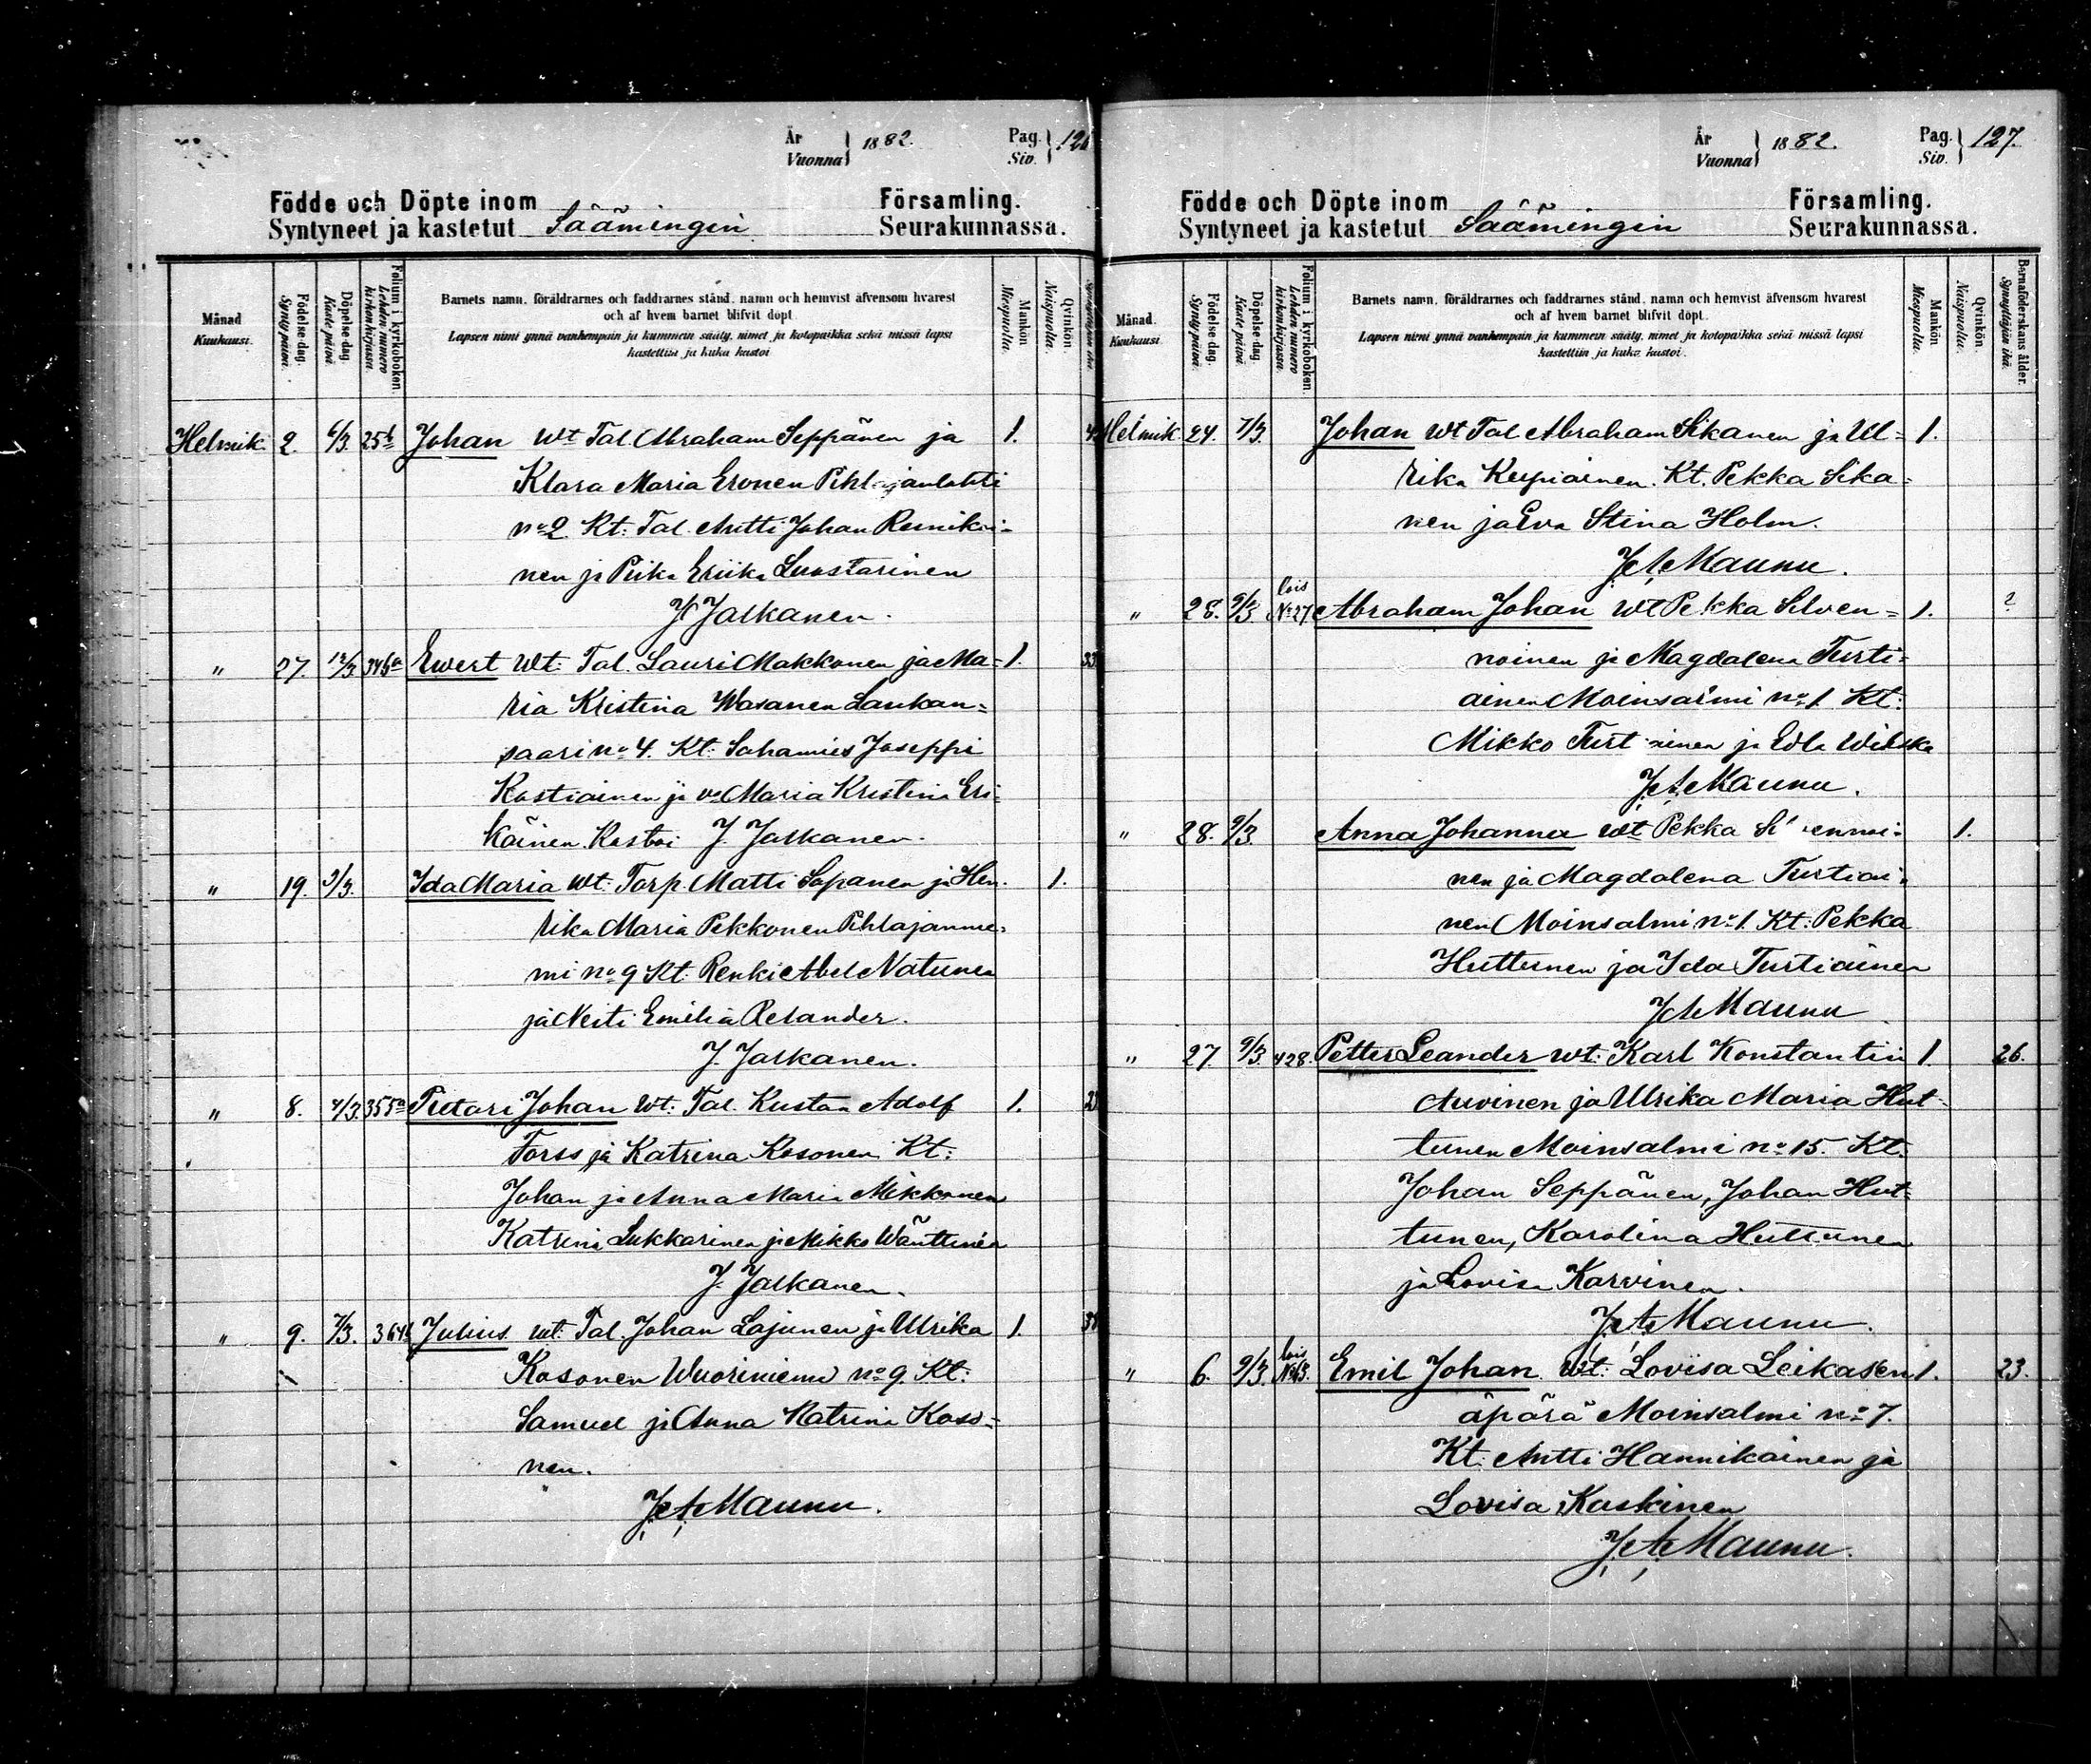 År
Vuonna } 1882.
Pag.
Siv. } 126
Födde och Döpte inom
Syntyneet ja kastetut Säämingin
Församling.
Seurakunnassa.
Månad
Kuukausi.
Födelse-dag.
Synty päivä.
Döpelse-dag.
Kaste päivä.
Folium i kyrkoboken.
Lehden numero
kirkonkirjassa.
Barnets namn, föräldrarnes och faddrarnes stånd, namn och hemvist äfvensom hvarest
och af hvem barnet blifvit döpt.
Lapsen nimi ynnä vanhempain ja kummein sääty, nimet ja kotopaikka sekä missä lapsi
kastettiin ja kuka kastoi
Mankön.
Miespuolta.
Qvinkön.
Naispuolta.
Helmik. 2. 6/3. 25b Johan wt Tal Abraham Seppänen ja 1.
Klara Maria Eronen Pihlajanlahti
no 2. Kt: Tal. Antti Johan Reinikai-
nen ja Piika Eriika Luostarinen
J. Jalkanen.
" 27. 12/3 346a Ewert wt: Tal. Lauri Makkonen ja Ma- 1. 33
ria Kristina Wasanen Laukan-
saari no 4. Kt: Sahamies Joseppi
Kostiainen ja vo Maria Kristina Eri-
käinen. Kastoi J. Jalkanen.
" 19. 9/3. Ida Maria wt: Torp. Matti Sapanen ja Hen- 1.
rika Maria Pekkonen Pihlajannie-
mi no 9 Kt: Renki Abel Natunen
ja Neiti Emilia Relander.
J. Jalkanen.
" 8. 4/3. 355a Pietari Johan wt: Tal. Kustaa Adolf 1. 23
Forss ja Katrina Kosonen Kt:
Johan ja Anna Maria Mikkonen
Katrina Lukkarinen ja Mikko Wänttinen
J. Jalkanen.
" 9. 7/3. 364b Julius wt: Tal. Johan Lajunen ja Ulrika 1. 38
Kosonen Wuoriniemi no 9. Kt:
Samuel ja Anna Katrina Koso-
nen.
J. A. Maunu.
År
Vuonna } 1882.
Pag.
Siv. } 127.
Födde och Döpte inom
Syntyneet ja kastetut Säämingin
Församling.
Seurakunnassa.
Månad.
Kuukausi
Födelse-dag.
Synty päivä.
Döpelse-dag.
Kaste päivä.
Folium i kyrkoboken.
Lehden numero
kirkonkirjassa.
Barnets namn, föräldrarnes och faddrarnes stånd, namn och hemvist äfvensom hvarest
och af hvem barnet blifvit döpt.
Lapsen nimi ynnä vanhempain ja kummein sääty, nimet ja kotopaikka sekä missä lapsi
kastettiin ja kuka kastoi.
Mankön
Miespuolta.
Qvinkön.
Naispuolta.
Barnaföderskans ålder.
Synnyttäjän ikä.
Helmik. 24. 7/3. Johan wt Tal Abraham Sikanen ja Ul- 1.
rika Kurpiainen. Kt. Pekka Sika-
nen ja Eva Stina Holm.
J. A. Maunu.
" 28. 9/3 lois No 27. Abraham Johan wt Pekka Silven- 1. 2
noinen ja Magdalena Turti-
ainen Moinsalmi no 1. Kt:
Mikko Turtiainen ja Edla Wilska
J. A. Maunu.
" 28. 9/3. Anna Johanna wt Pekka Silvennoi- 1.
nen ja Magdalena Turtiai-
nen Moinsalmi no 1. Kt: Pekka
Huttunen ja Ida Turtiainen
J. A. Maunu
" 27. 9/3. 428. Petter Leander wt: Karl Konstantin 1. 26.
Auvinen ja Ulrika Maria Hut-
tunen Moinsalmi no 15. Kt.
Johan Seppänen, Johan Hut-
tunen, Karolina Huttunen
ja Lovisa Karvinen.
J. A. Maunu.
" 6. 9/3. lois No 13. Emil Johan wt: Lovisa Leikasen 1. 23.
äpärä Moinsalmi no 7.
Kt: Antti Hannikainen ja
Lovisa Kaskinen
J. A. Maunu.